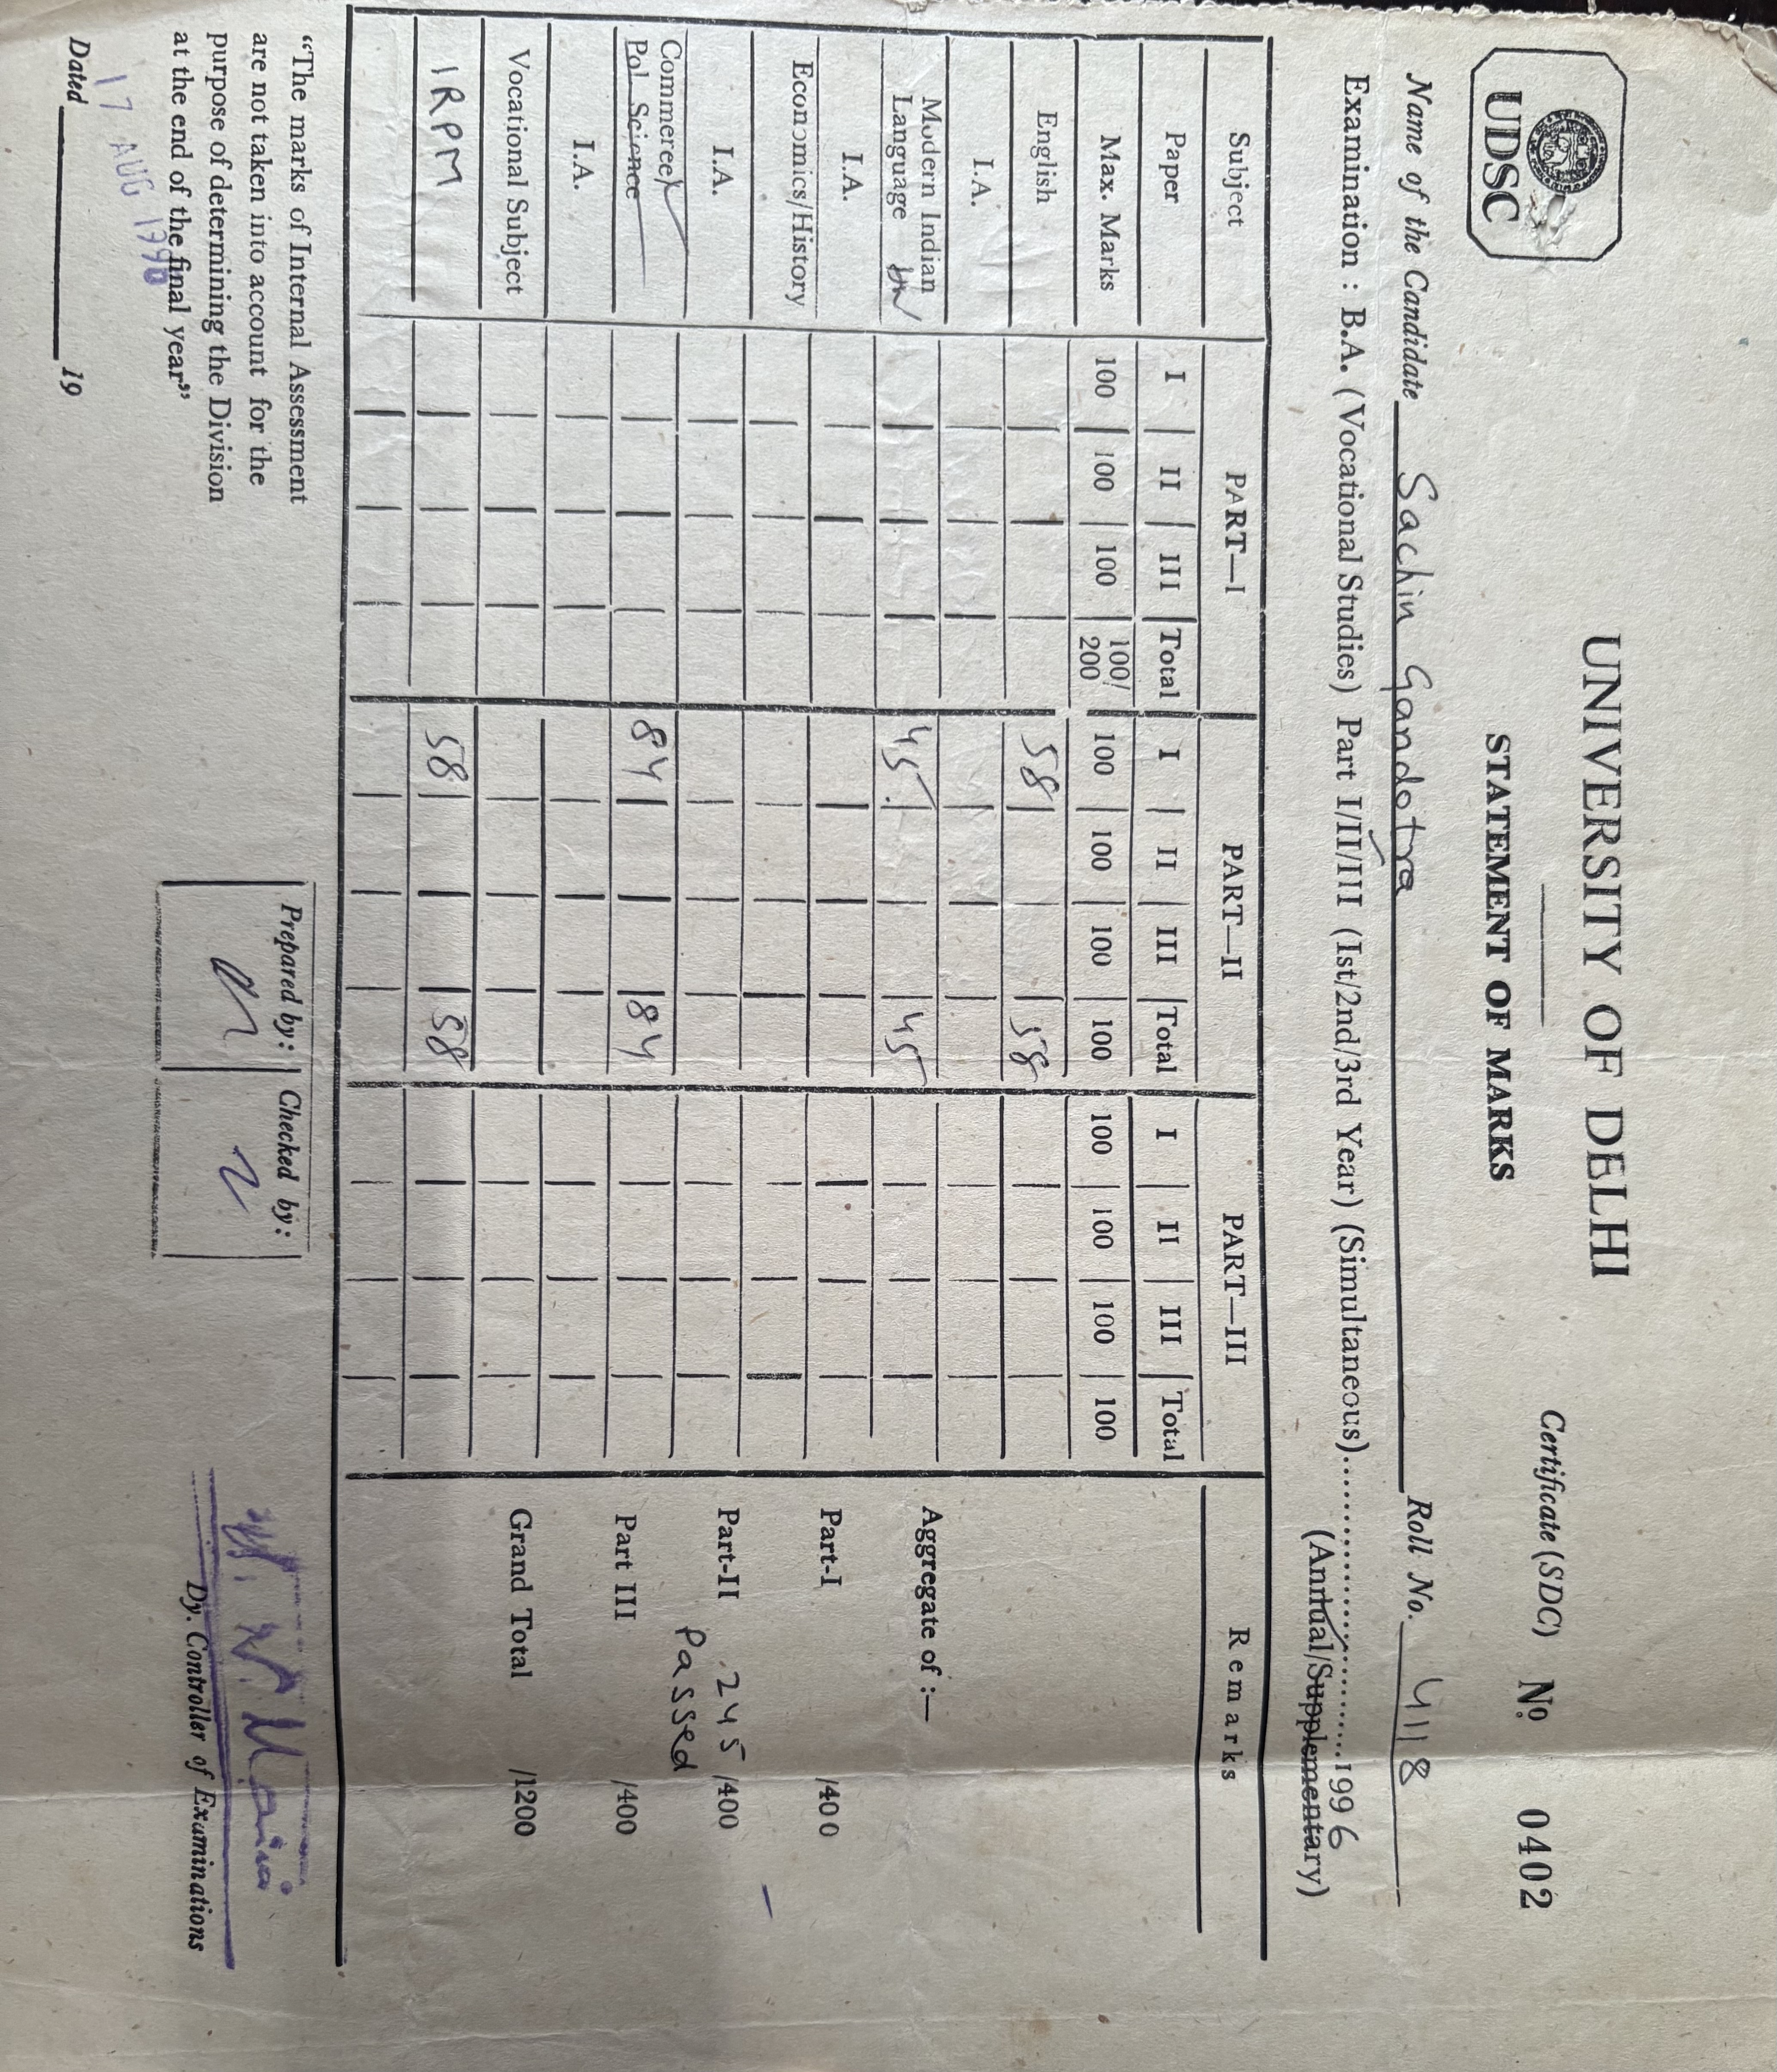 UNIVERSITY OF DELHI
UDSC
STATEMENT OF MARKS
Certificate (SDC) No 0402
Name of the Candidate Sachin Gandotra Roll No. 4118
Examination : B.A. (Vocational Studies) Part I/II/III (Ist/2nd/3rd Year) (Simultaneous)..............................1996
(Annual/Supplementary)
Subject PART—I PART—II PART—III Remarks
Paper I II III Total I II III Total I II III Total
Max. Marks 100 100 100 100/200 100 100 100 100 100 100 100 100
English 58 58
I.A.
Modern Indian Language 45 45 Aggregate of :—
I.A. Part-I /400
Economics/History
I.A. Part-II 245 /400
Passed
Commerce/Pol. Science 84 84 Part III /400
I.A.
Vocational Subject Grand Total /1200
IRPM 58 58
"The marks of Internal Assessment
are not taken into account for the
purpose of determining the Division
at the end of the final year"
Prepared by: Checked by:
17 AUG 1996
Dated 19
Dy. Controller of Examinations